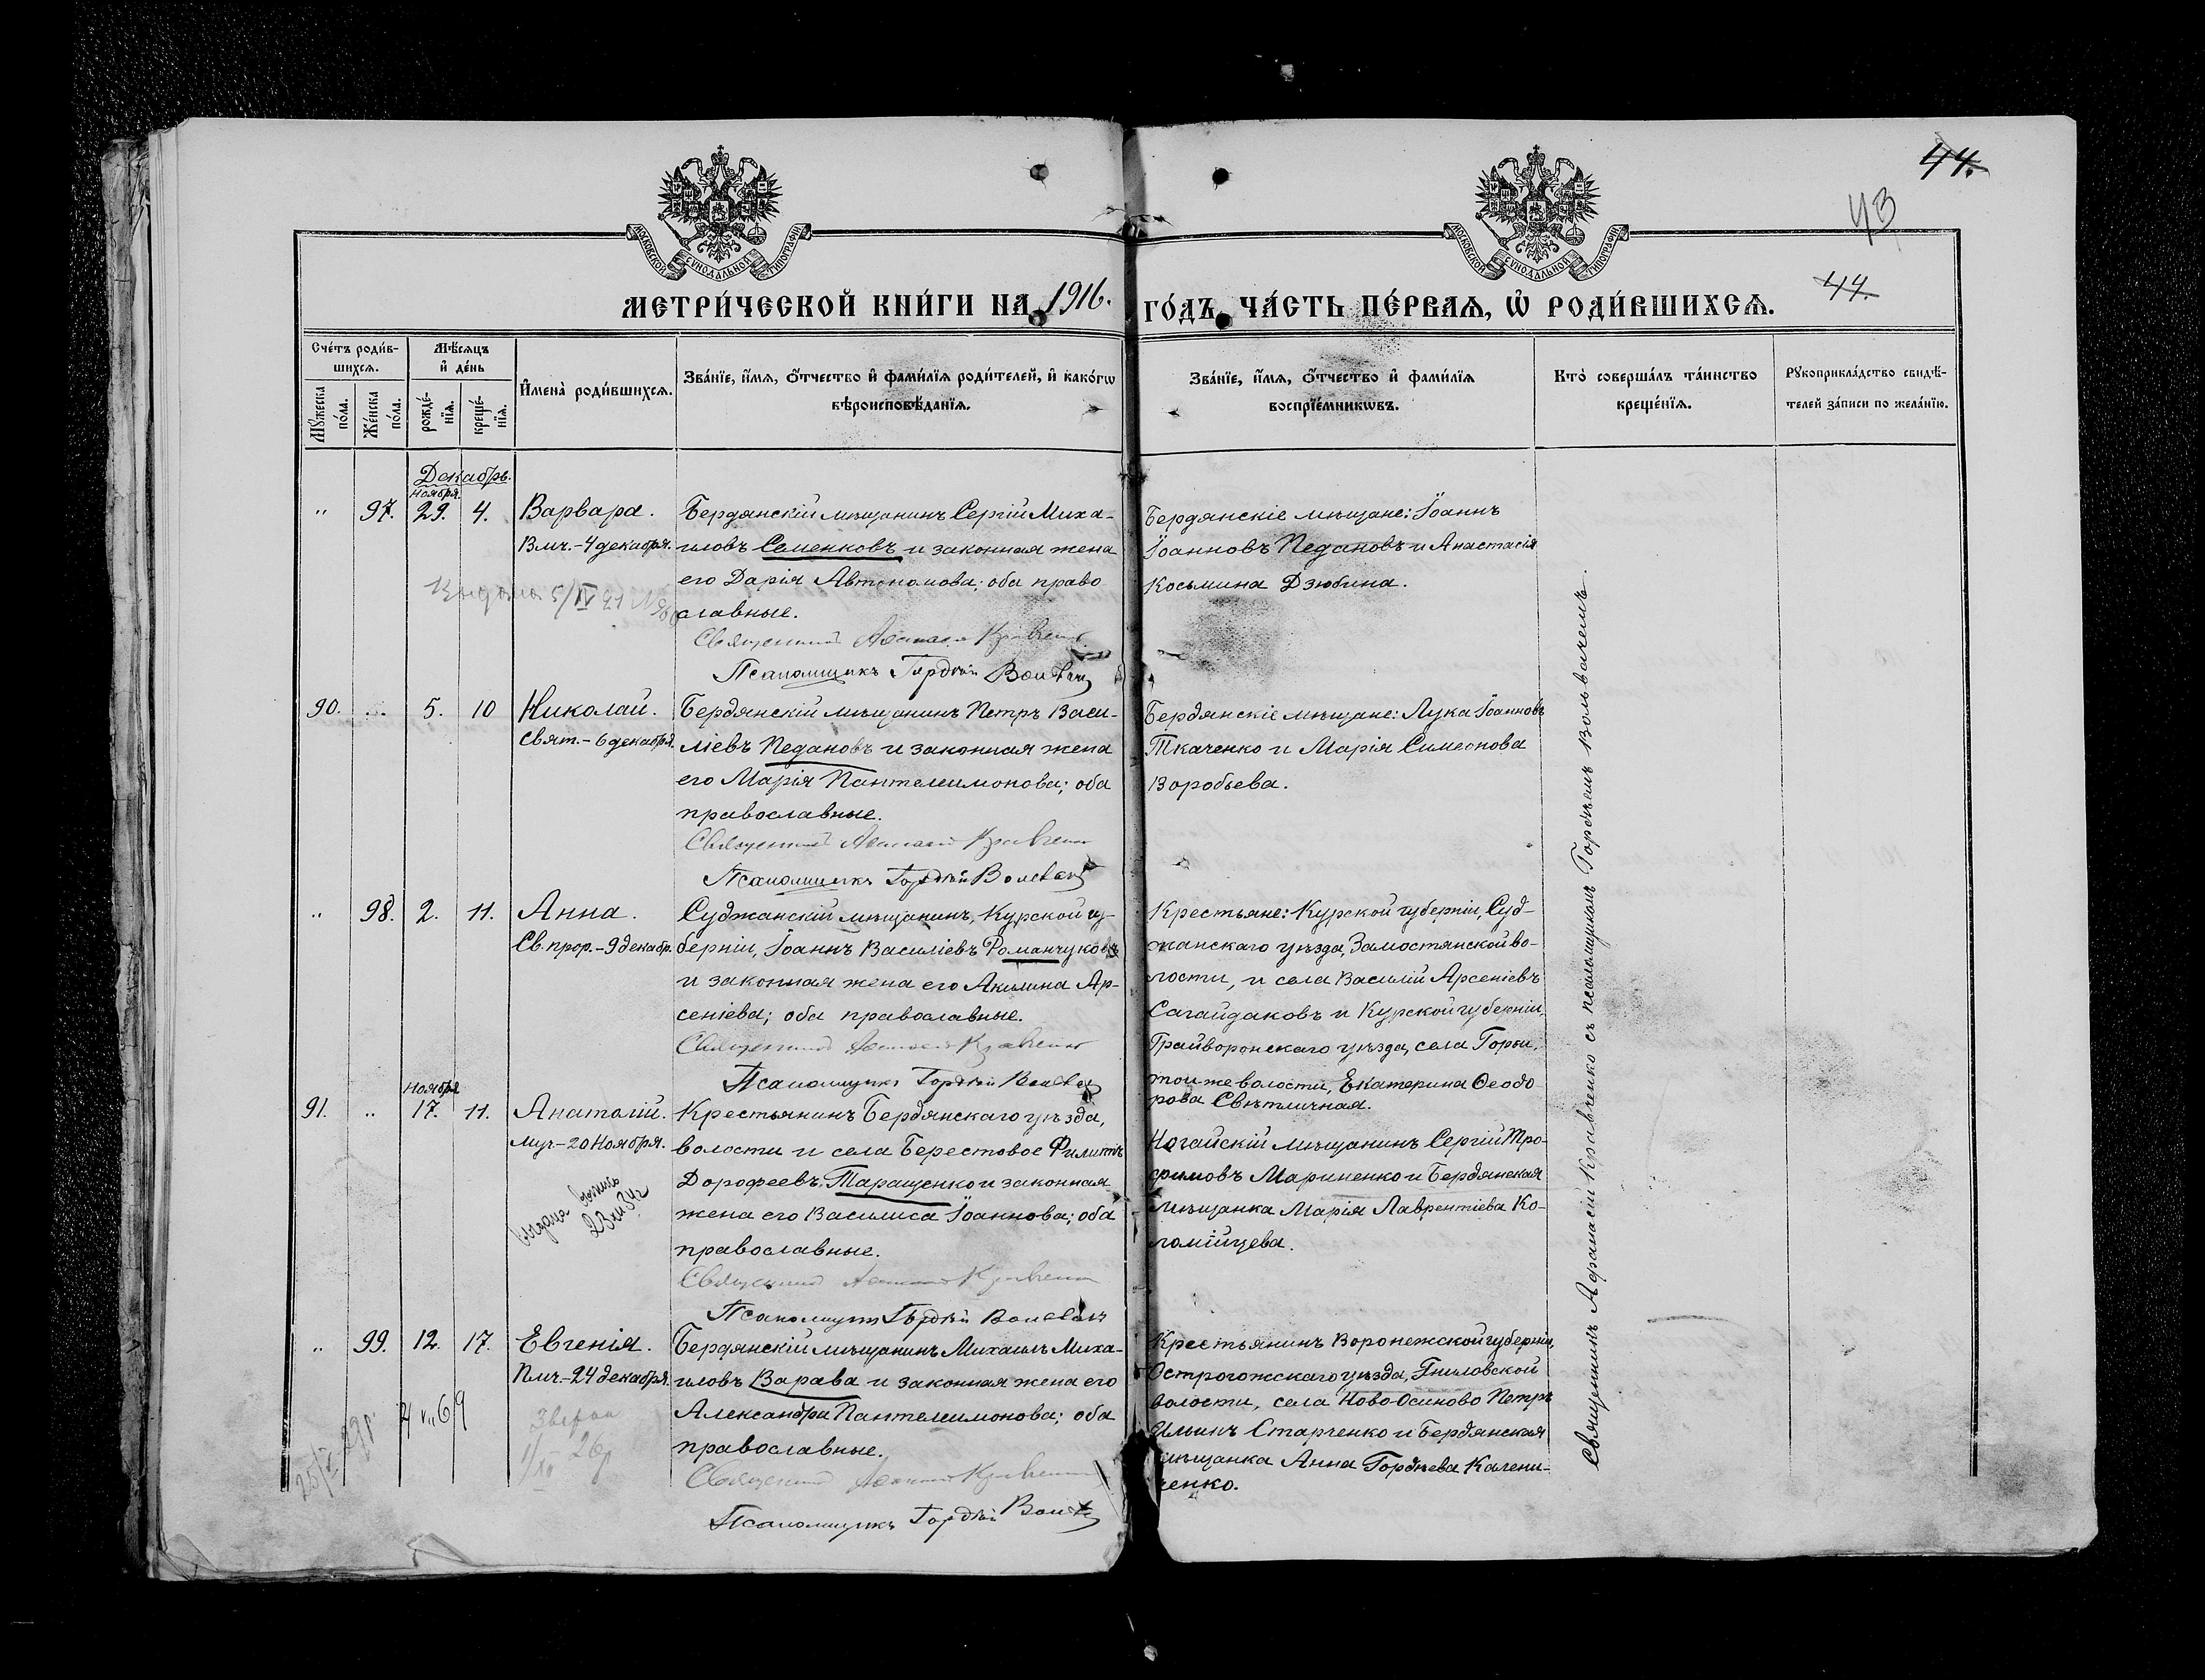 44.
43
44.
МОСКОВСКОЙ СУНОДАЛЬНОЙ ТИПОГРАФІИ
МОСКОВСКОЙ СУНОДАЛЬНОЙ ТИПОГРАФІИ
МЕТРИ́ЧЕСКОЙ КНИ́ГИ НА 1916. ГО́ДЪ, ЧА́СТЬ ПЕ́РВАѦ, Ѽ РОДИ́ВШИХСѦ.
Сче́тъ роди́в-
шихсѧ.
Мꙋжеска по́ла.
Же́нска по́ла.
Мѣ́сѧцъ и҆ де́нь
рожде́-нїѧ.
креще́-нїѧ.
И҆мена̀ роди́вшихсѧ.
Зва́нїе, и҆́мѧ, ѻ҆́тчество и҆ фами́лїѧ роди́телей, и҆ како́гѡ
вѣроисповѣ́данїѧ.
Зва́нїе, и҆́мѧ, ѻ҆́тчество и҆ фами́лїѧ
воспрїе́мникѡвъ.
Кто̀ соверша́лъ та́инство
креще́нїѧ.
Рꙋкоприкла́дство свидѣ́-
телей за́писи по жела́нїю.
Декабрь.
Ноября
" 97. 29. 4. Варвара.
Вмч.-4 декабря.
Бердянскій мѣщанинъ Сергій Миха-
иловъ Семенковъ и законная жена
его Дарія Автономова; оба право
славные.
Священникъ Аѳанасій Кравченко
Псаломщикъ Гордѣй Вольвачъ
Бердянскіе мѣщане: Іоаннъ
Іоанновъ Педановъ и Анастасія
Косьмина Дзюбина.
90. " 5. 10 Николай.
Свят.-6 декабря.
Бердянскій мѣщанинъ Петръ Васи-
ліевъ Педановъ и законная жена
его Марія Пантелеимонова; оба
православные.
Священникъ Аѳанасій Кравченко
Псаломщикъ Гордѣй Вольвачъ
Бердянскіе мѣщане: Лука Іоанновъ
Ткаченко и Марія Симеонова
Воробьева.
" 98. 2. 11. Анна.
Св. прор.-9 декабр.
Суджанскій мѣщанинъ, Курской гу-
берніи, Іоаннъ Василіевъ Романчуковъ
и законная жена его Акилина Ар-
сеніева; оба православные.
Священникъ Аѳанасій Кравченко
Псаломщикъ Гордѣй Вольвачъ
Крестьяне: Курской губерніи, Суд-
жанскаго уѣзда, Замостянской во-
лости, и села Василій Арсеніевъ
Сагайдаковъ и Курской губерніи,
Грайворонскаго уѣзда, села
той же волости, Екатерина Ѳеодо-
рова Свѣтличная.
Ноября
91. " 17. 11. Анатолій.
Муч-20 Ноября.
Крестьянинъ Бердянскаго уѣзда,
волости и села Берестовое Филиппъ
Дорофеевъ Таращенко и законная
жена его Василиса Іоаннова; оба
православные.
Священникъ Аѳанасій Кравченко
Псаломщикъ Гордѣй Вольвачъ
Ногайскій мѣщанинъ Сергій Тро-
фимовъ Мариненко и Бердянская
мѣщанка Марія Лаврентіева Ко-
ломійцева.
" 99. 12. 17. Евгенія.
Пмч.-24 декабря.
Бердянскій мѣщанинъ Михаилъ Миха-
иловъ Варава и законная жена его
Александра Пантелеимонова; оба
православные.
Священникъ Аѳанасій Кравченко
Псаломщикъ Гордѣй Вольвачъ
Крестьянинъ Воронежской губерніи,
Острогожскаго уѣзда, Гниловской
волости, села Ново-Осиново Петръ
Ильинъ Старченко и Бердянская
мѣщанка Анна Гордѣева Калени-
ченко.
Священникъ Афанасій Кравченко съ псаломщикомъ Гордѣемъ Вольвачемъ.